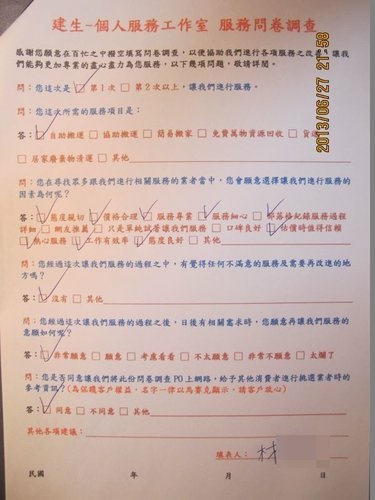 建生~個人服務工作室 服務問卷調查
感謝您願意在百忙之中撥空填寫問卷調查，以便協助我們進行各項服務之改善，讓我
們能夠更加專業的盡心盡力為您服務，以下幾項問題，敬請詳閱。
問：您這次是 □ 第1次 □ 第2次以上，讓我們進行服務。
問：您這次所需的服務項目是：
答：□ 自助搬運 □ 協助搬運 □ 簡易搬家 □ 免費萬物資源回收 □ 貨運
□ 居家廢棄物清運 □ 其他
問：您在尋找眾多跟我們進行相關服務的業者當中，您會願意選擇讓我們進行服務的
因素為何呢？
答：□ 態度親切 □ 價格合理 □ 服務專業 □ 服務細心 □ 部落格紀錄服務過程
詳細 □ 網友推薦 □ 只是單純試著讓我們服務 □ 口碑良好 □ 估價時值得信賴
□ 熱心服務 □ 工作有效率 □ 態度良好 □ 其他
問：您經過這次讓我們服務的過程之中，有覺得任何不滿意的服務及需要再改進的地
方嗎？
答：□ 沒有 □ 其他
問：您經過這次讓我們服務的過程之後，日後有相關需求時，您願意再讓我們服務的
意願如何呢？
答：□ 非常願意 □ 願意 □ 考慮看看 □ 不太願意 □ 非常不願意 □ 太爛了
問：您是否同意讓我們將此份問卷調查 PO 上網路，給予其他消費者進行挑選業者時的
參考資訊？(為保護客戶權益，名字一律以馬賽克顯示，請客戶放心)
答：□ 同意 □ 不同意 □ 其他
其他各項建議：
填表人： 林
民國 年 月 日
2013/06/27 21:58